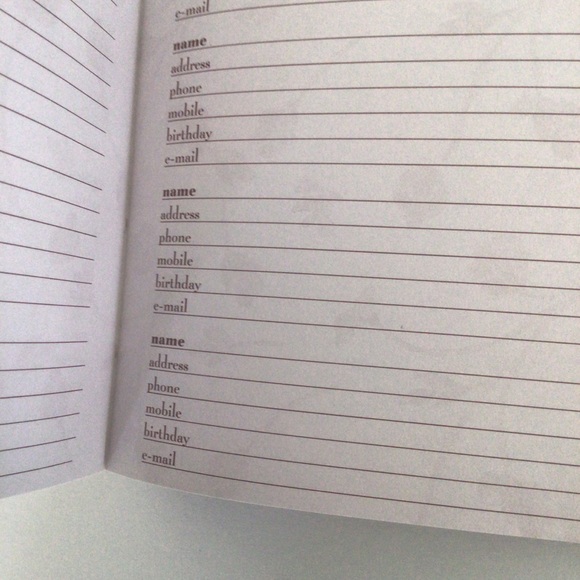 e-mail
name
address
phone
mobile
birthday
e-mail
name
address
phone
mobile
birthday
e-mail
name
address
phone
mobile
birthday
e-mail